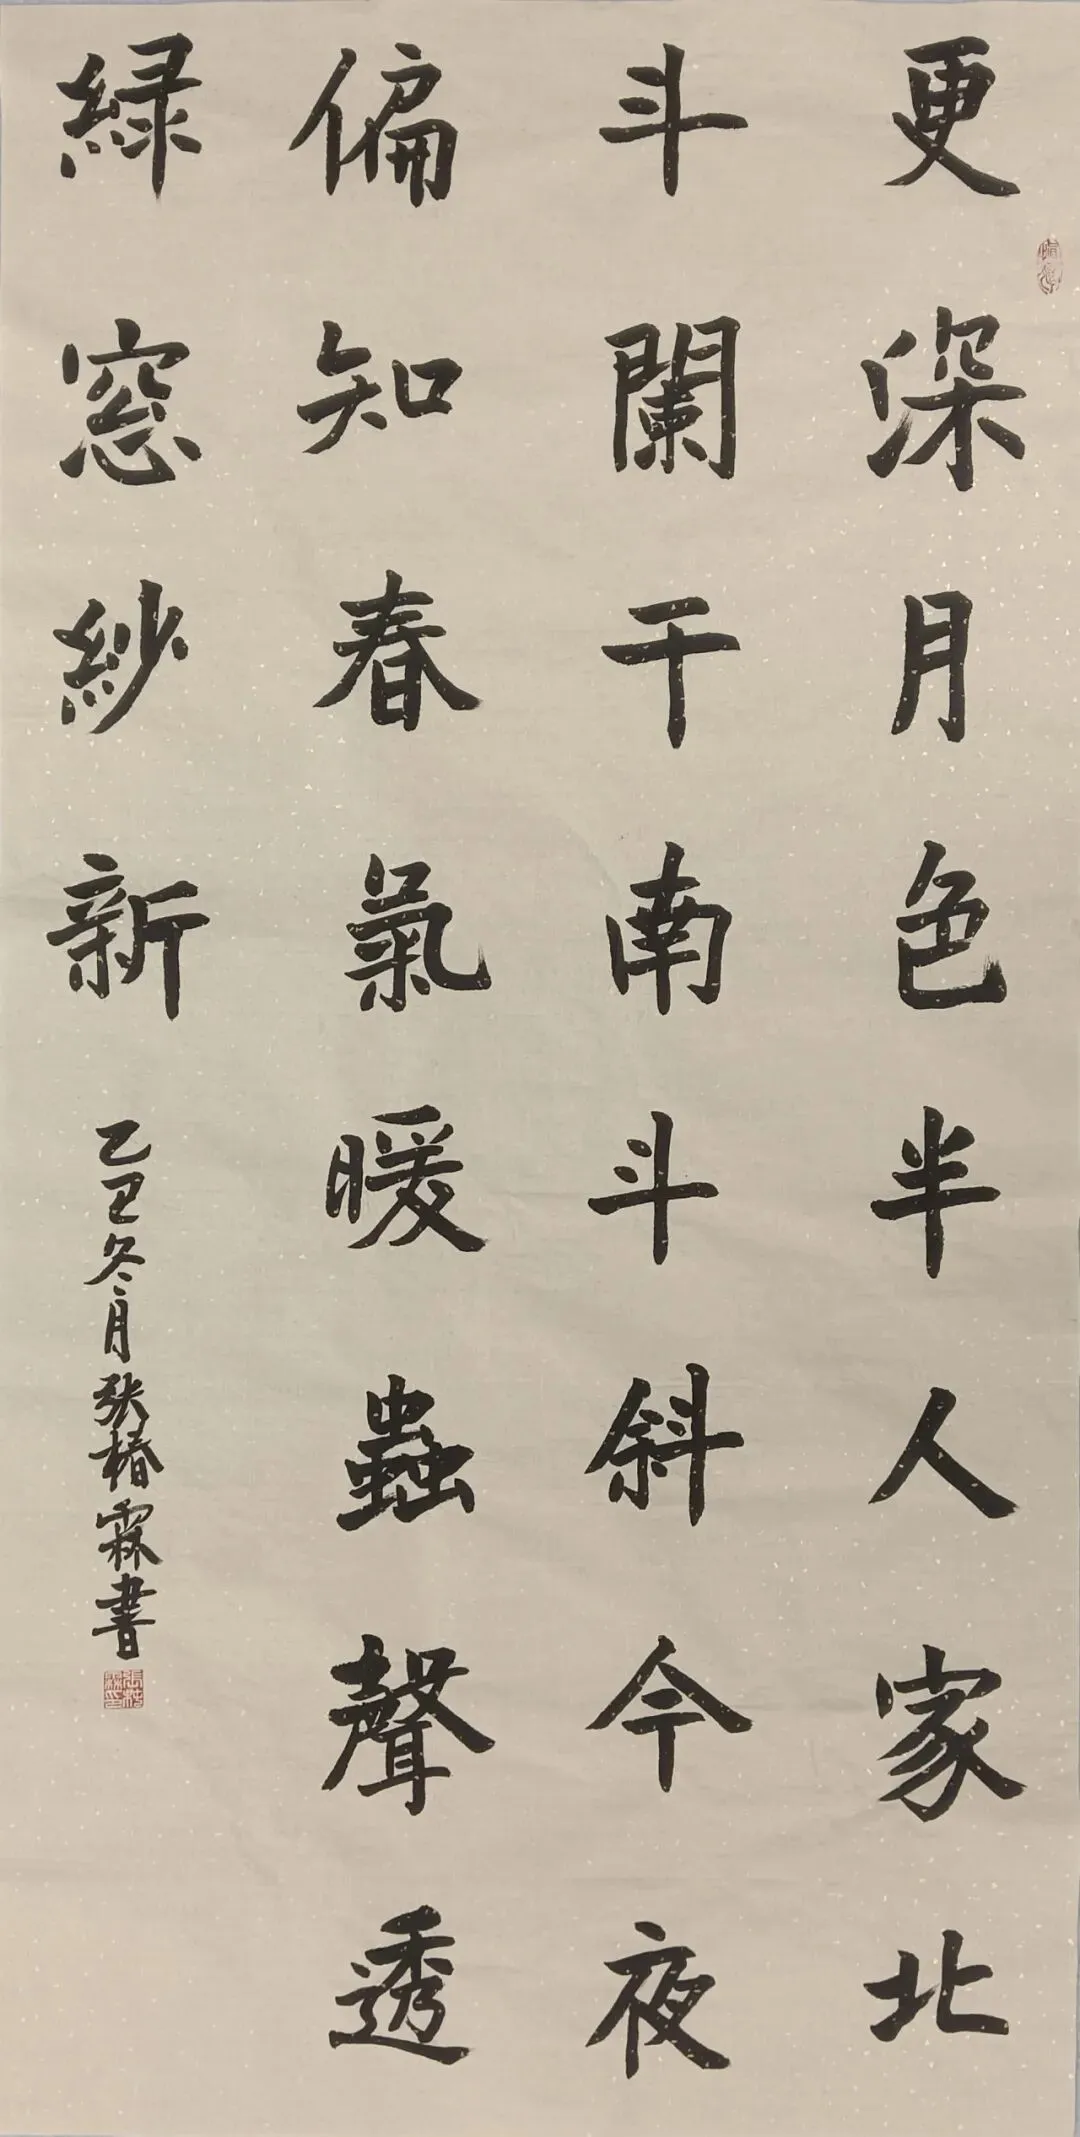 更深月色半人家北
斗闌干南斗斜今夜
偏知春氣暖蟲聲透
緑窓紗新
乙丑冬月张椿霖書